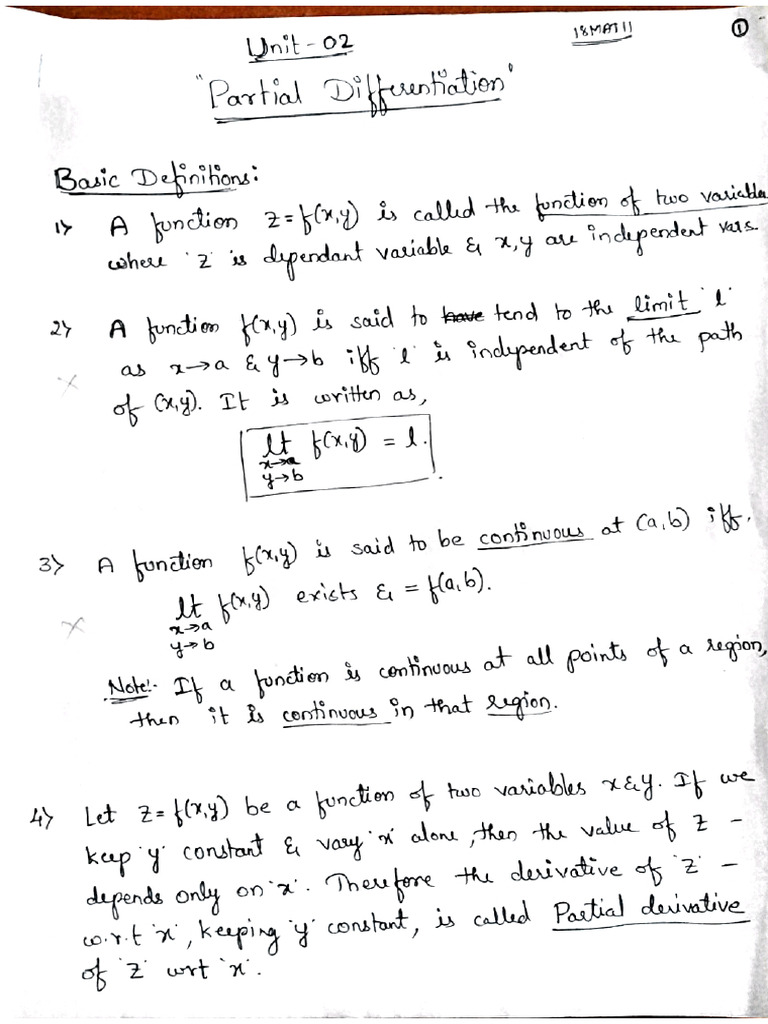 18MAT11 1
Unit-02
"Partial Differentiation"
Basic Definitions:
1> A function z=f(x,y) is called the function of two variables
where 'z' is dependant variable & x,y are independent vars.
2> A function f(x,y) is said to have tend to the limit 'l'
as x→a & y→b iff 'l' is independent of the path
of (x,y). It is written as,
lt f(x,y) = l.
x→a
y→b
3> A function f(x,y) is said to be continuous at (a,b) iff.
lt f(x,y) exists & = f(a,b).
x→a
y→b
Note:- If a function is continuous at all points of a region,
then it is continuous in that region.
4> Let z=f(x,y) be a function of two variables x&y. If we
keep 'y' constant & vary 'x' alone, then the value of z -
depends only on 'x'. Therefore the derivative of 'z' -
w.r.t 'x', keeping 'y' constant, is called Partial derivative
of 'z' wrt 'x'.